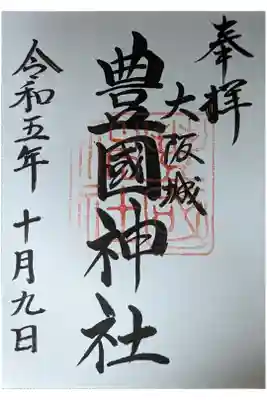 奉拝
大阪城
豊國神社
令和五年 十月九日